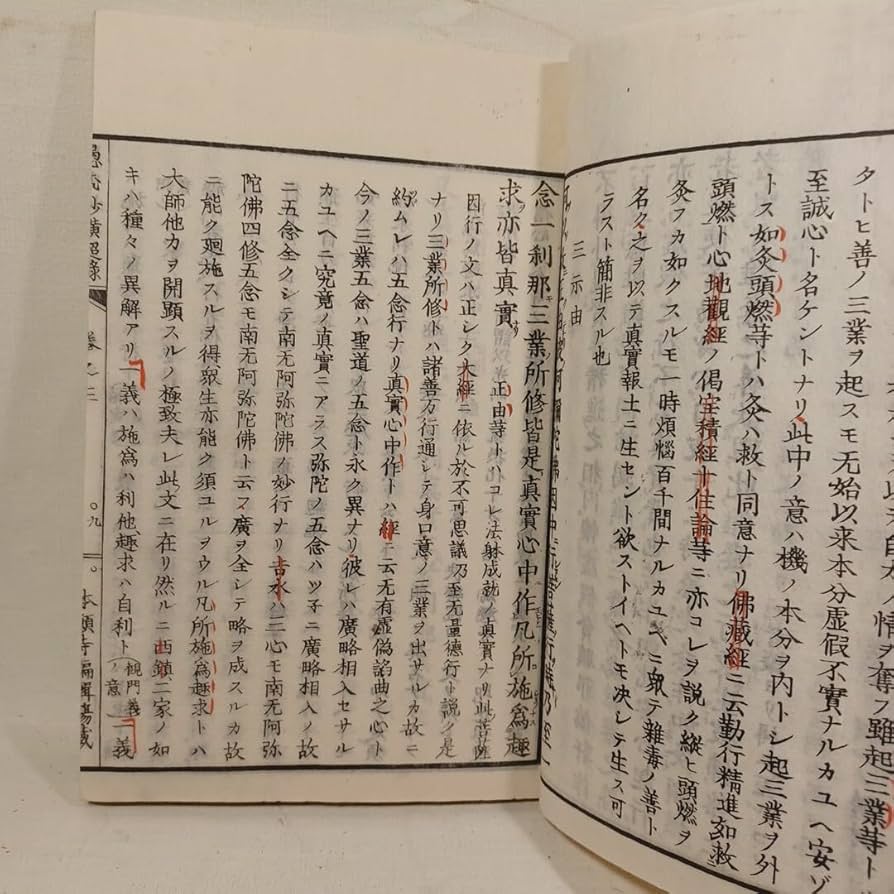 タトヒ善ノ三業ヲ起スモ无始以来本分虚假不實ナルカユヘ安ゾ
至誠心ト名ケントナリ此中ノ意ハ機ノ本分ヲ内トシ起三業ヲ外
トス如灸頭燃䒭トハ灸ハ救ト同意ナリ佛藏經ニ云勤行精進如救
頭燃ト心地觀經ノ偈宝積經十住論䒭ニ亦コレヲ説ク縱ヒ頭燃ヲ
灸フカ如クスルモ一時煩惱百千間ナルカユヘニ取テ雜毒ノ善ト
名ク之ヲ以テ真實報土ニ生セント欲ストイヘトモ决レテ生ス可
ラスト簡非スル也
三示由
念一刹那三業所修皆是真實心中作凡所施爲趣
求亦皆真實
正由䒭トハコレ法躰成就ノ真實ナリ此菩薩
因行ノ文ハ正シク大經ニ依ル於不可思議乃至无量德行ト説ク是
ナリ三業所修トハ諸善万行通シテ身口意ノ三業ヲ出サルカ故ニ
約ムレハ五念行ナリ真實心中作トハ經ニ云无有虚偽諂曲之心ト
今ノ三業五念ハ聖道ノ五念ト永ク異ナリ彼レハ廣略相入セサル
カユヘニ究竟ノ真實ニアラス弥陀ノ五念ハツ子ニ廣略相入ノ故
ニ五念全クシテ南无阿弥陀佛ノ妙行ナリ吉水ハ三心モ南无阿弥
陀佛四修五念モ南无阿弥陀佛ト云フ廣ヲ全シテ略ヲ成スルカ故
ニ能ク廻施スルヲ得衆生亦能ク須ユルヲウル凡所施爲趣求トハ
大師他力ヲ開顕スルノ極致夫レ此文ニ在リ然ルニ西鎮二家ノ如
キハ種々ノ異解アリ一義ハ施爲ハ利他趣求ハ自利ト觀門義ノ意一義
卷之三
〇九
本願寺編輯